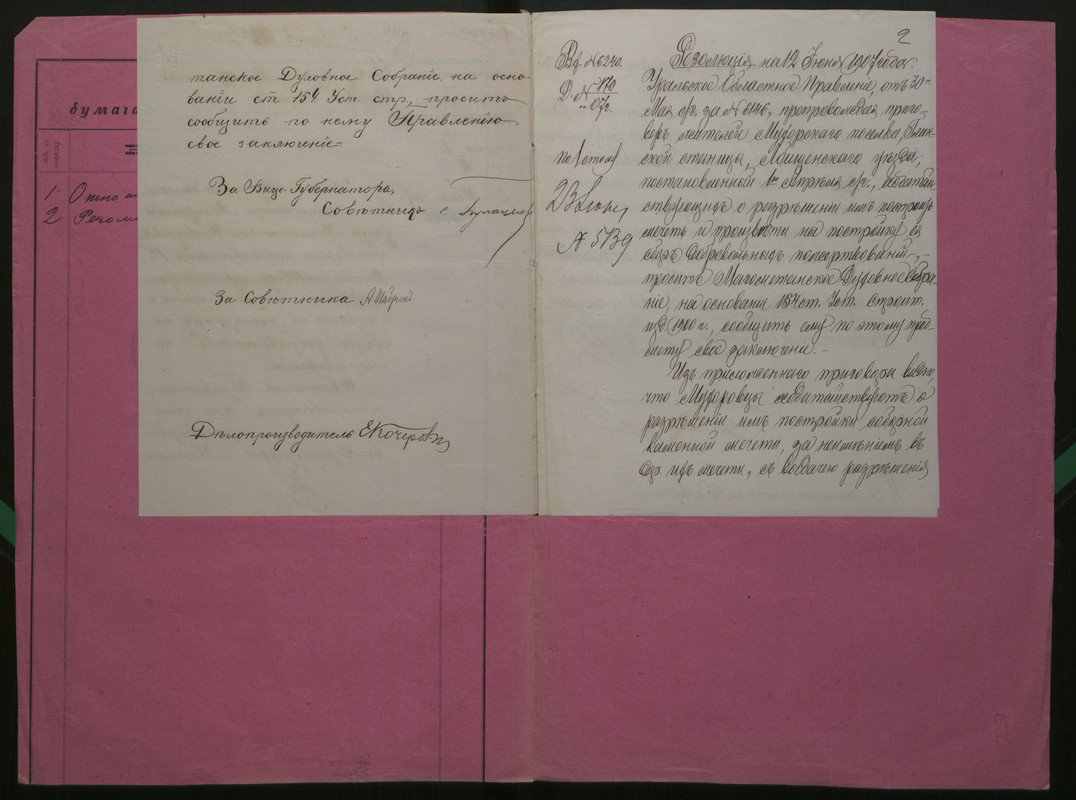 бумага
1. О
2
танское Духовное Собраніе, на осно-
ваніи ст 154 Уст. стр., просить
сообщить по нему Правленію
свое заключеніе=
За Вице-Губернатора,
Совѣтникъ
За Совѣтника
Дѣлопроизводитель
2
Вх. № 6240.
Д. №
23 Іюня
№ 5139
Резолюція на 12 Іюня 1907 года.
Уральское Областное Правленіе, отъ 30-
Мая с/г. за № 6146, препровождая приго-
воръ жителей посёлка,
ской станицы, уѣзда,
постановленный 1го Апрѣля с/г., ходатай-
ствующихъ о разрѣшеніи имъ построить
мечеть и произвести на постройку ея
сборъ добровольныхъ пожертвованій, -
просить Магометанское Духовное Собра-
ніе, на основаніи 154 ст. Уст. Строит.
изд 1900 г., сообщить ему по этому пред-
мету свое заключеніе. -
Изъ приложеннаго приговора видно,
что ходатайствуютъ о
разрѣшеніи имъ постройки соборной
каменной мечети, за неимѣніемъ въ
ихъ мечети, съ выдачею разрѣшенія